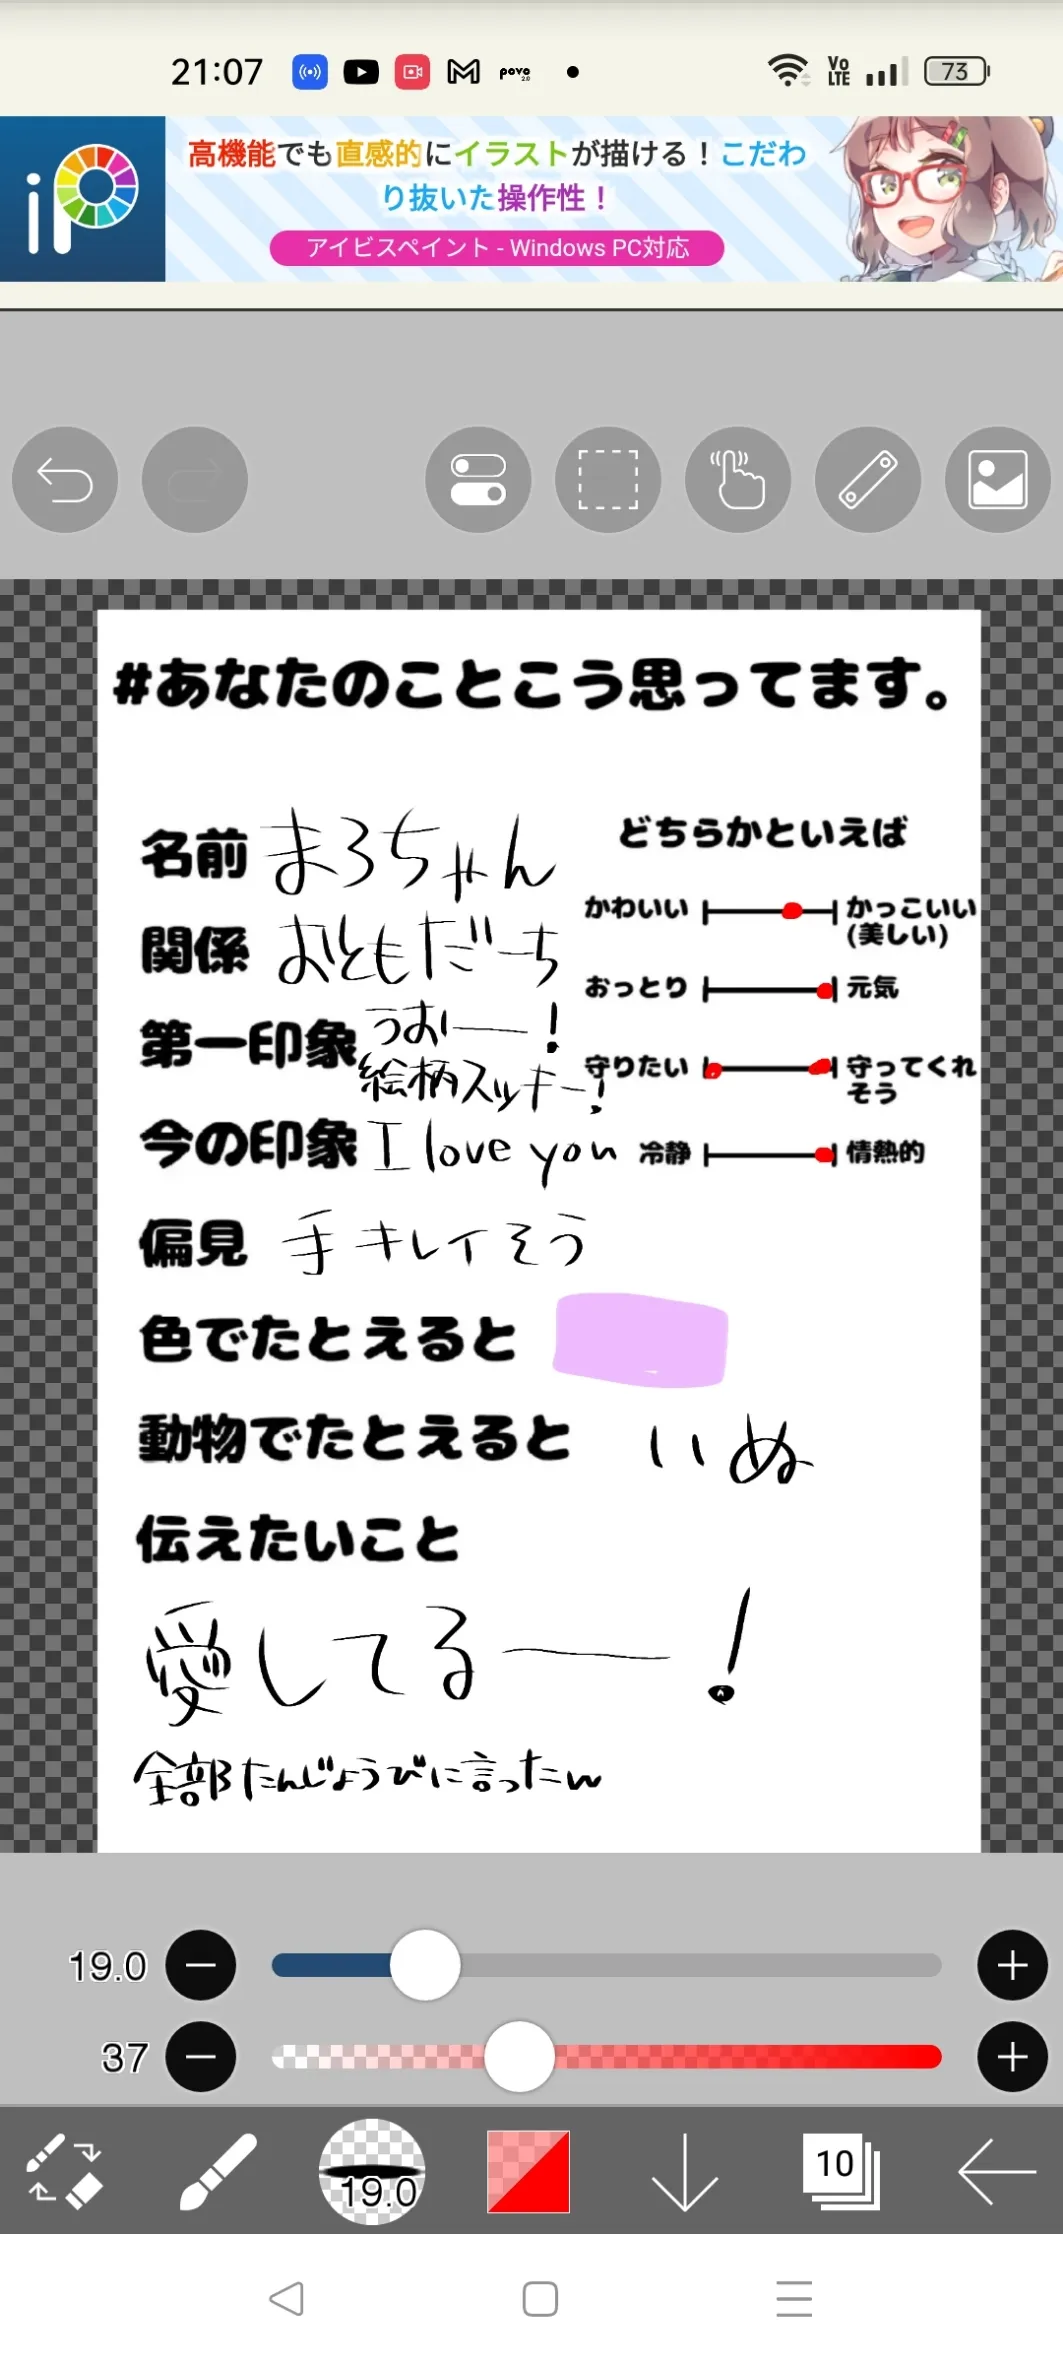 21:07
povo 2.0
Vo LTE
73
iP
高機能でも直感的にイラストが描ける！こだわ
り抜いた操作性！
アイビスペイント - Windows PC対応
#あなたのことこう思ってます。
名前 まろちゃん
関係 おともだーち
第一印象 うおー！
絵柄スッキー！
今の印象 I love you
偏見 手キレイそう
色でたとえると
動物でたとえると いぬ
伝えたいこと
愛してるー！
全部たんじょうびに言ったw
どちらかといえば
かわいい かっこいい
(美しい)
おっとり 元気
守りたい 守ってくれ
そう
冷静 情熱的
19.0
37
19.0
10